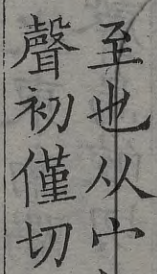 至也从宀
聲初僅切